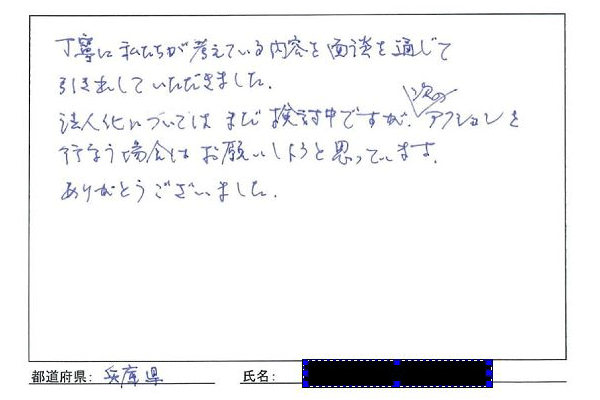 丁寧に私たちが考えている内容を面談を通じて
引き出していただきました。
法人化についてはまだ検討中ですが、次のアクションを
行なう場合はお願いしようと思っています。
ありがとうございました。
都道府県: 兵庫県 氏名: